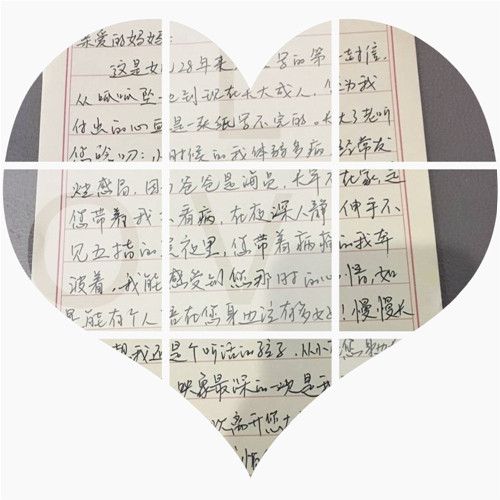 亲爱的妈妈:
这是女儿28年来 写的第一封信,
从呱呱坠 到现在长大成人, 为我
付出的心 是一张纸写不完的。长大了老听
您唠叨:小时候的我体弱多病, 经常发
烧感冒,因 爸爸是海员,长年不在家,是
您带着我 看病,在夜深人静 伸手不
见五指的黑夜里,您带着病痛的我奔
波着,我能感受到您那时的心情,如
果能有个人陪在您身边该有多好!慢慢长
我还是个听话的孩子,从小 您身边
映象最深的一次是
次离开您
情